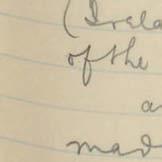 (Irela
of the
a
mad